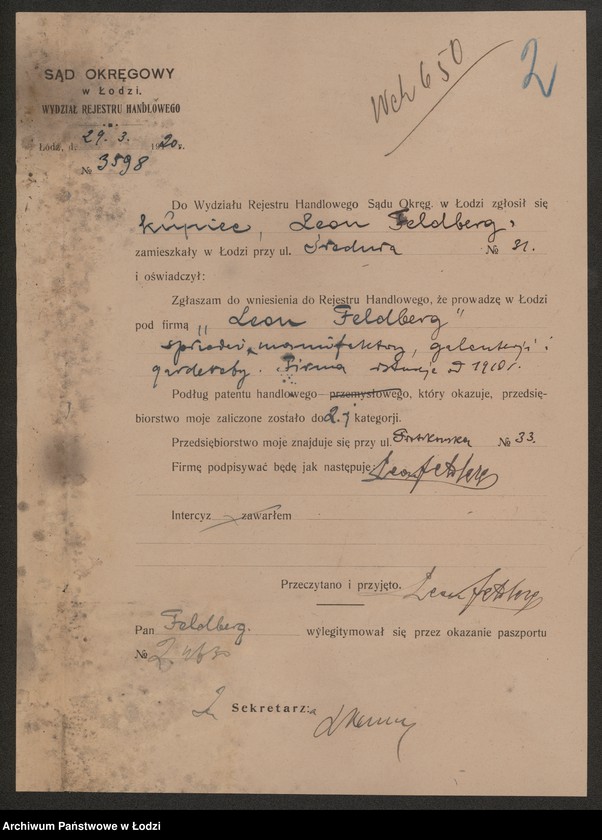 2
Wch 650
SĄD OKRĘGOWY
w Łodzi.
WYDZIAŁ REJESTRU HANDLOWEGO
Łódź, d. 29. 3. 1920 r.
№ 3598
Do Wydziału Rejestru Handlowego Sądu Okręg. w Łodzi zgłosił się
kupiec, Leon Feldberg,
zamieszkały w Łodzi przy ul. Średnia № 31.
i oświadczył:
Zgłaszam do wniesienia do Rejestru Handlowego, że prowadzę w Łodzi
pod firmą „Leon Feldberg”
sprzedaż manufaktury, galanterji i
garderoby. Firma istnieje od 1910 r.
Podług patentu handlowego przemysłowego, który okazuje, przedsię-
biorstwo moje zaliczone zostało do 2-j kategorji.
Przedsiębiorstwo moje znajduje się przy ul. Piotrkowska № 33.
Firmę podpisywać będę jak następuje: Leon Feldberg
Intercyz zawarłem
Przeczytano i przyjęto. Leon Feldberg
Pan Feldberg. wylegitymował się przez okazanie paszportu
№
Sekretarz:
Archiwum Państwowe w Łodzi